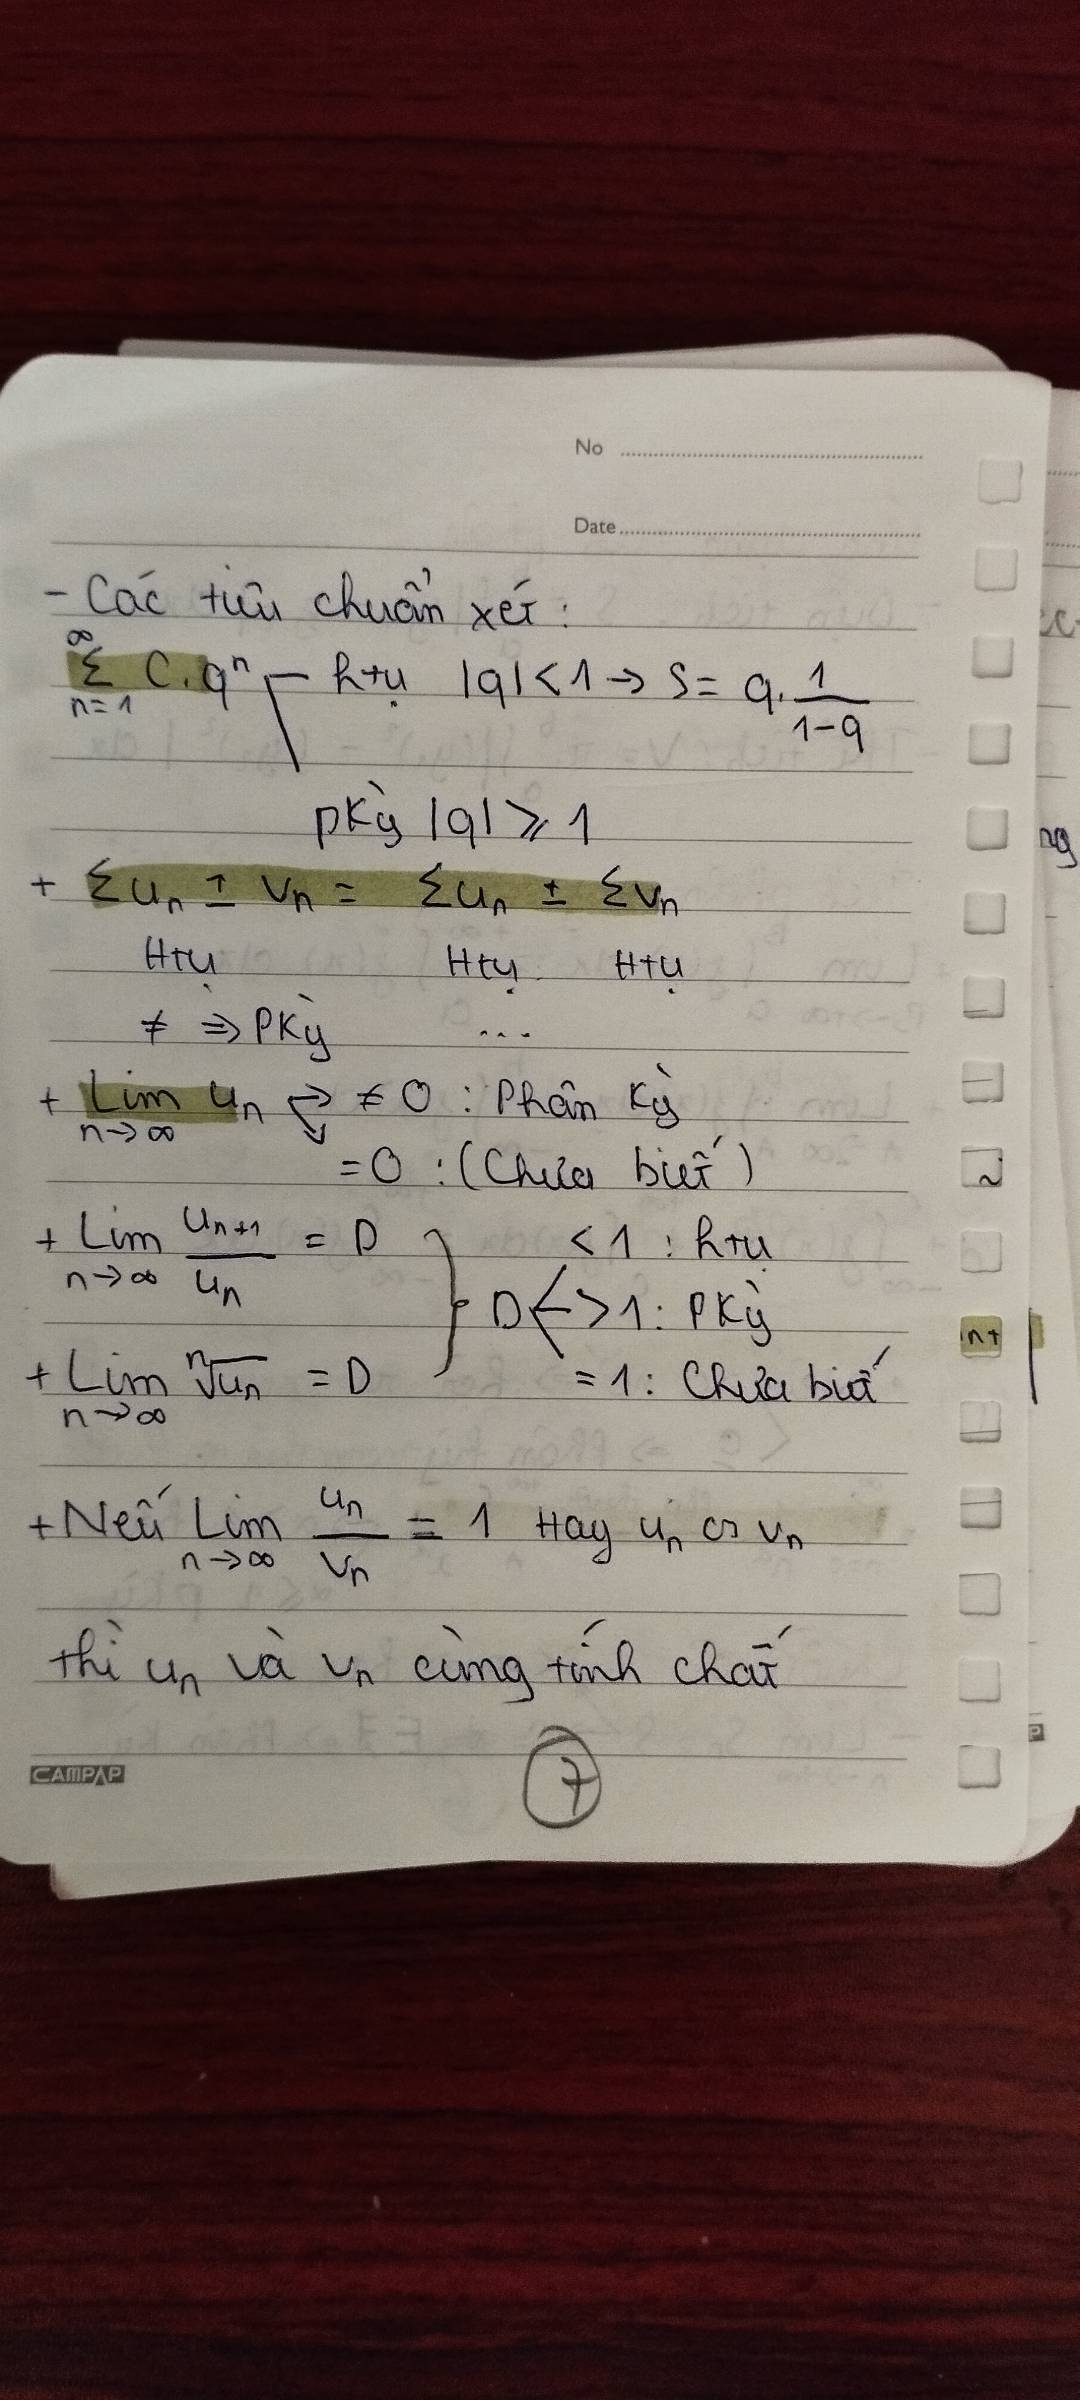 No
Date
- Các tiêu chuẩn xét:
∞
Σ C.qⁿ — htụ |q| < 1 → S = q. 1/(1-q)
n=1
pkỳ |q| ⩾ 1
+ Σuₙ ± vₙ = Σuₙ ± Σvₙ
Htụ Htụ Htụ
≠ ⇒ Pkỳ ...
+ Lim uₙ → ≠ 0 : Phân kỳ
n→∞
= 0 : (Chưa biết)
+ Lim uₙ₊₁/uₙ = D < 1 : htụ
n→∞
D > 1 : Pkỳ
+ Lim ⁿ√uₙ = D = 1 : Chưa biết
n→∞
+ Nếu Lim uₙ/vₙ = 1 Hay uₙ ∽ vₙ
n→∞
thì uₙ và vₙ cùng tính chất
7
CAMPAP
n+